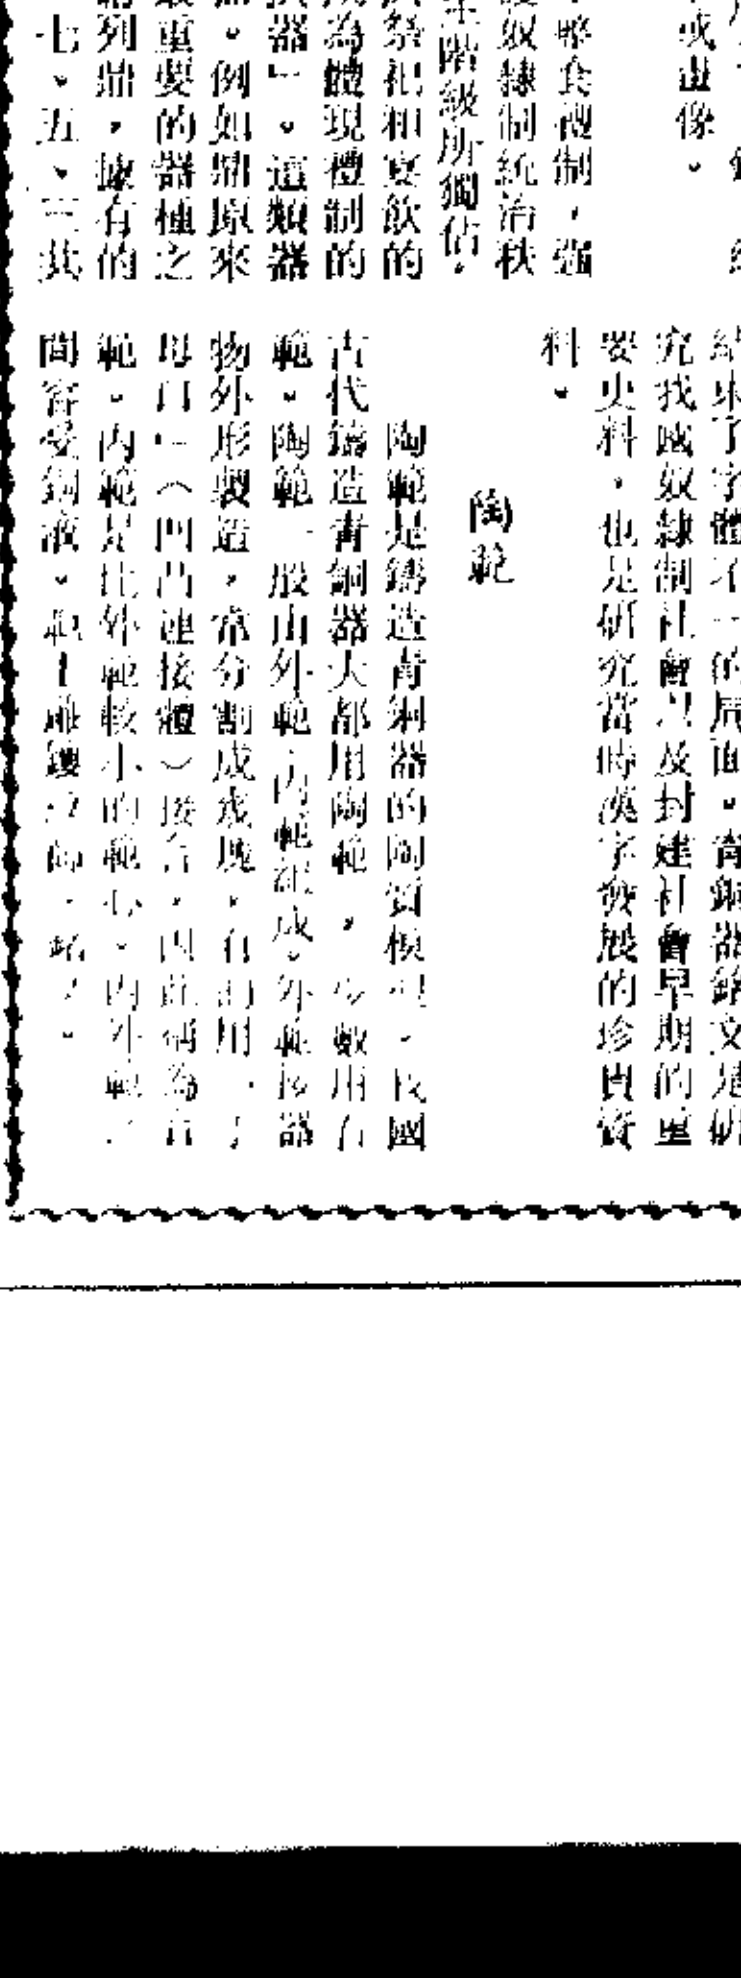 或畫像。
略食禮制，強
奴隸制統治秩
階級所獨佔，
祭祀和宴飲的
為體現禮制的
器」。這類器
。例如鼎原來
重要的器種之
列鼎，據有的
七、五、三共
結束了字體不一的局面。青銅器銘文是研
究我國奴隸制社會以及封建社會早期的重
要史料，也是研究當時漢字發展的珍貴資
料。
陶範
陶範是鑄造青銅器的陶質模型。我國
古代鑄造青銅器大都用陶範，少數用石
範。陶範一般由外範、內範組成。外範按器
物外形製造，常分割成數塊，有的用
母口」（凹凸連接體）接合，因此稱為合
範。內範是比外範較小的範心。內外範之
間容受銅液。範上雕鏤文飾、銘文。